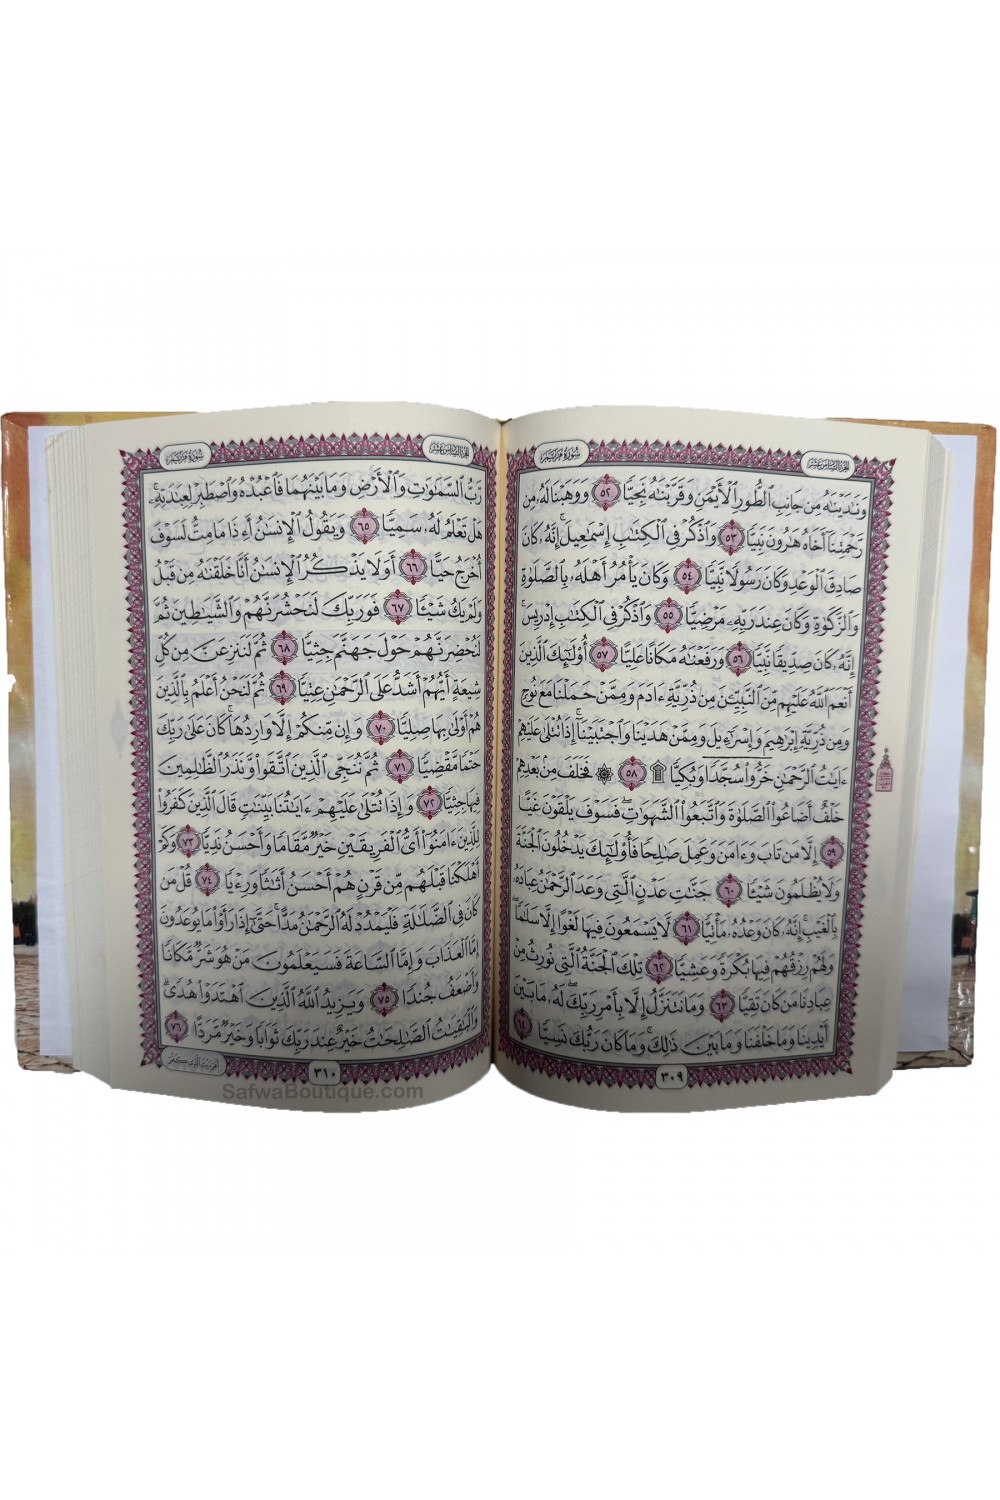 سورة مريم
الجزء السادس عشر
وَنَٰدَيْنَٰهُ مِن جَانِبِ ٱلطُّورِ ٱلْأَيْمَنِ وَقَرَّبْنَٰهُ نَجِيًّا ٥٢ وَوَهَبْنَا لَهُۥ مِن
رَّحْمَتِنَآ أَخَاهُ هَٰرُونَ نَبِيًّا ٥٣ وَٱذْكُرْ فِى ٱلْكِتَٰبِ إِسْمَٰعِيلَ ۚ إِنَّهُۥ كَانَ
صَادِقَ ٱلْوَعْدِ وَكَانَ رَسُولًا نَّبِيًّا ٥٤ وَكَانَ يَأْمُرُ أَهْلَهُۥ بِٱلصَّلَوٰةِ
وَٱلزَّكَوٰةِ وَكَانَ عِندَ رَبِّهِۦ مَرْضِيًّا ٥٥ وَٱذْكُرْ فِى ٱلْكِتَٰبِ إِدْرِيسَ ۚ
إِنَّهُۥ كَانَ صِدِّيقًا نَّبِيًّا ٥٦ وَرَفَعْنَٰهُ مَكَانًا عَلِيًّا ٥٧ أُو۟لَٰٓئِكَ ٱلَّذِينَ
أَنْعَمَ ٱللَّهُ عَلَيْهِم مِّنَ ٱلنَّبِيِّـۧنَ مِن ذُرِّيَّةِ ءَادَمَ وَمِمَّنْ حَمَلْنَا مَعَ نُوحٍ
وَمِن ذُرِّيَّةِ إِبْرَٰهِيمَ وَإِسْرَٰٓءِيلَ وَمِمَّنْ هَدَيْنَا وَٱجْتَبَيْنَآ ۚ إِذَا تُتْلَىٰ عَلَيْهِمْ
ءَايَٰتُ ٱلرَّحْمَٰنِ خَرُّوا۟ سُجَّدًا وَبُكِيًّا ۩ ٥٨ ۞ فَخَلَفَ مِنۢ بَعْدِهِمْ
خَلْفٌ أَضَاعُوا۟ ٱلصَّلَوٰةَ وَٱتَّبَعُوا۟ ٱلشَّهَوَٰتِ ۖ فَسَوْفَ يَلْقَوْنَ غَيًّا
٥٩ إِلَّا مَن تَابَ وَءَامَنَ وَعَمِلَ صَٰلِحًا فَأُو۟لَٰٓئِكَ يَدْخُلُونَ ٱلْجَنَّةَ
وَلَا يُظْلَمُونَ شَيْـًٔا ٦٠ جَنَّٰتِ عَدْنٍ ٱلَّتِى وَعَدَ ٱلرَّحْمَٰنُ عِبَادَهُۥ
بِٱلْغَيْبِ ۚ إِنَّهُۥ كَانَ وَعْدُهُۥ مَأْتِيًّا ٦١ لَّا يَسْمَعُونَ فِيهَا لَغْوًا إِلَّا سَلَٰمًا ۖ
وَلَهُمْ رِزْقُهُمْ فِيهَا بُكْرَةً وَعَشِيًّا ٦٢ تِلْكَ ٱلْجَنَّةُ ٱلَّتِى نُورِثُ مِنْ
عِبَادِنَا مَن كَانَ تَقِيًّا ٦٣ وَمَا نَتَنَزَّلُ إِلَّا بِأَمْرِ رَبِّكَ ۖ لَهُۥ مَا بَيْنَ
أَيْدِينَا وَمَا خَلْفَنَا وَمَا بَيْنَ ذَٰلِكَ ۚ وَمَا كَانَ رَبُّكَ نَسِيًّا ٦٤
٣٠٩
سورة مريم
الجزء السادس عشر
رَّبُّ ٱلسَّمَٰوَٰتِ وَٱلْأَرْضِ وَمَا بَيْنَهُمَا فَٱعْبُدْهُ وَٱصْطَبِرْ لِعِبَٰدَتِهِۦ ۚ
هَلْ تَعْلَمُ لَهُۥ سَمِيًّا ٦٥ وَيَقُولُ ٱلْإِنسَٰنُ أَءِذَا مَا مِتُّ لَسَوْفَ
أُخْرَجُ حَيًّا ٦٦ أَوَلَا يَذْكُرُ ٱلْإِنسَٰنُ أَنَّا خَلَقْنَٰهُ مِن قَبْلُ
وَلَمْ يَكُ شَيْـًٔا ٦٧ فَوَرَبِّكَ لَنَحْشُرَنَّهُمْ وَٱلشَّيَٰطِينَ ثُمَّ
لَنُحْضِرَنَّهُمْ حَوْلَ جَهَنَّمَ جِثِيًّا ٦٨ ثُمَّ لَنَنزِعَنَّ مِن كُلِّ
شِيعَةٍ أَيُّهُمْ أَشَدُّ عَلَى ٱلرَّحْمَٰنِ عِتِيًّا ٦٩ ثُمَّ لَنَحْنُ أَعْلَمُ بِٱلَّذِينَ
هُمْ أَوْلَىٰ بِهَا صِلِيًّا ٧٠ وَإِن مِّنكُمْ إِلَّا وَارِدُهَا ۚ كَانَ عَلَىٰ رَبِّكَ
حَتْمًا مَّقْضِيًّا ٧١ ثُمَّ نُنَجِّى ٱلَّذِينَ ٱتَّقَوا۟ وَّنَذَرُ ٱلظَّٰلِمِينَ
فِيهَا جِثِيًّا ٧٢ وَإِذَا تُتْلَىٰ عَلَيْهِمْ ءَايَٰتُنَا بَيِّنَٰتٍ قَالَ ٱلَّذِينَ كَفَرُوا۟
لِلَّذِينَ ءَامَنُوٓا۟ أَىُّ ٱلْفَرِيقَيْنِ خَيْرٌ مَّقَامًا وَأَحْسَنُ نَدِيًّا ٧٣ وَكَمْ
أَهْلَكْنَا قَبْلَهُم مِّن قَرْنٍ هُمْ أَحْسَنُ أَثَٰثًا وَرِءْيًا ٧٤ قُلْ مَن
كَانَ فِى ٱلضَّلَٰلَةِ فَلْيَمْدُدْ لَهُ ٱلرَّحْمَٰنُ مَدًّا ۚ حَتَّىٰٓ إِذَا رَأَوْا۟ مَا يُوعَدُونَ
إِمَّا ٱلْعَذَابَ وَإِمَّا ٱلسَّاعَةَ فَسَيَعْلَمُونَ مَنْ هُوَ شَرٌّ مَّكَانًا
وَأَضْعَفُ جُندًا ٧٥ وَيَزِيدُ ٱللَّهُ ٱلَّذِينَ ٱهْتَدَوْا۟ هُدًى ۗ
وَٱلْبَٰقِيَٰتُ ٱلصَّٰلِحَٰتُ خَيْرٌ عِندَ رَبِّكَ ثَوَابًا وَخَيْرٌ مَّرَدًّا ٧٦
أفرءيت الذي كفر
٣١٠
SafwaBoutique.com